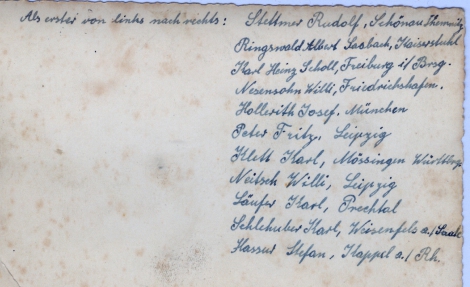 Als erster von links nach rechts: Stettmer Rudolf, Schönau Chemnitz
Ringswald Albert Sasbach, Kaiserstuhl
Karl Heinz Scholl, Freiburg i/ Brsg.
Nesensohn Willi, Friedrichshafen.
Hollerith Josef, München
Peter Fritz, Leipzig
Klett Karl, Mössingen Württbg.
Neitsch Willi, Leipzig
Läufer Karl, Prechtal
Schlehuber Karl, Weisenfels a./ Saale
Hassur Stefan, Kappel a./ Rh.